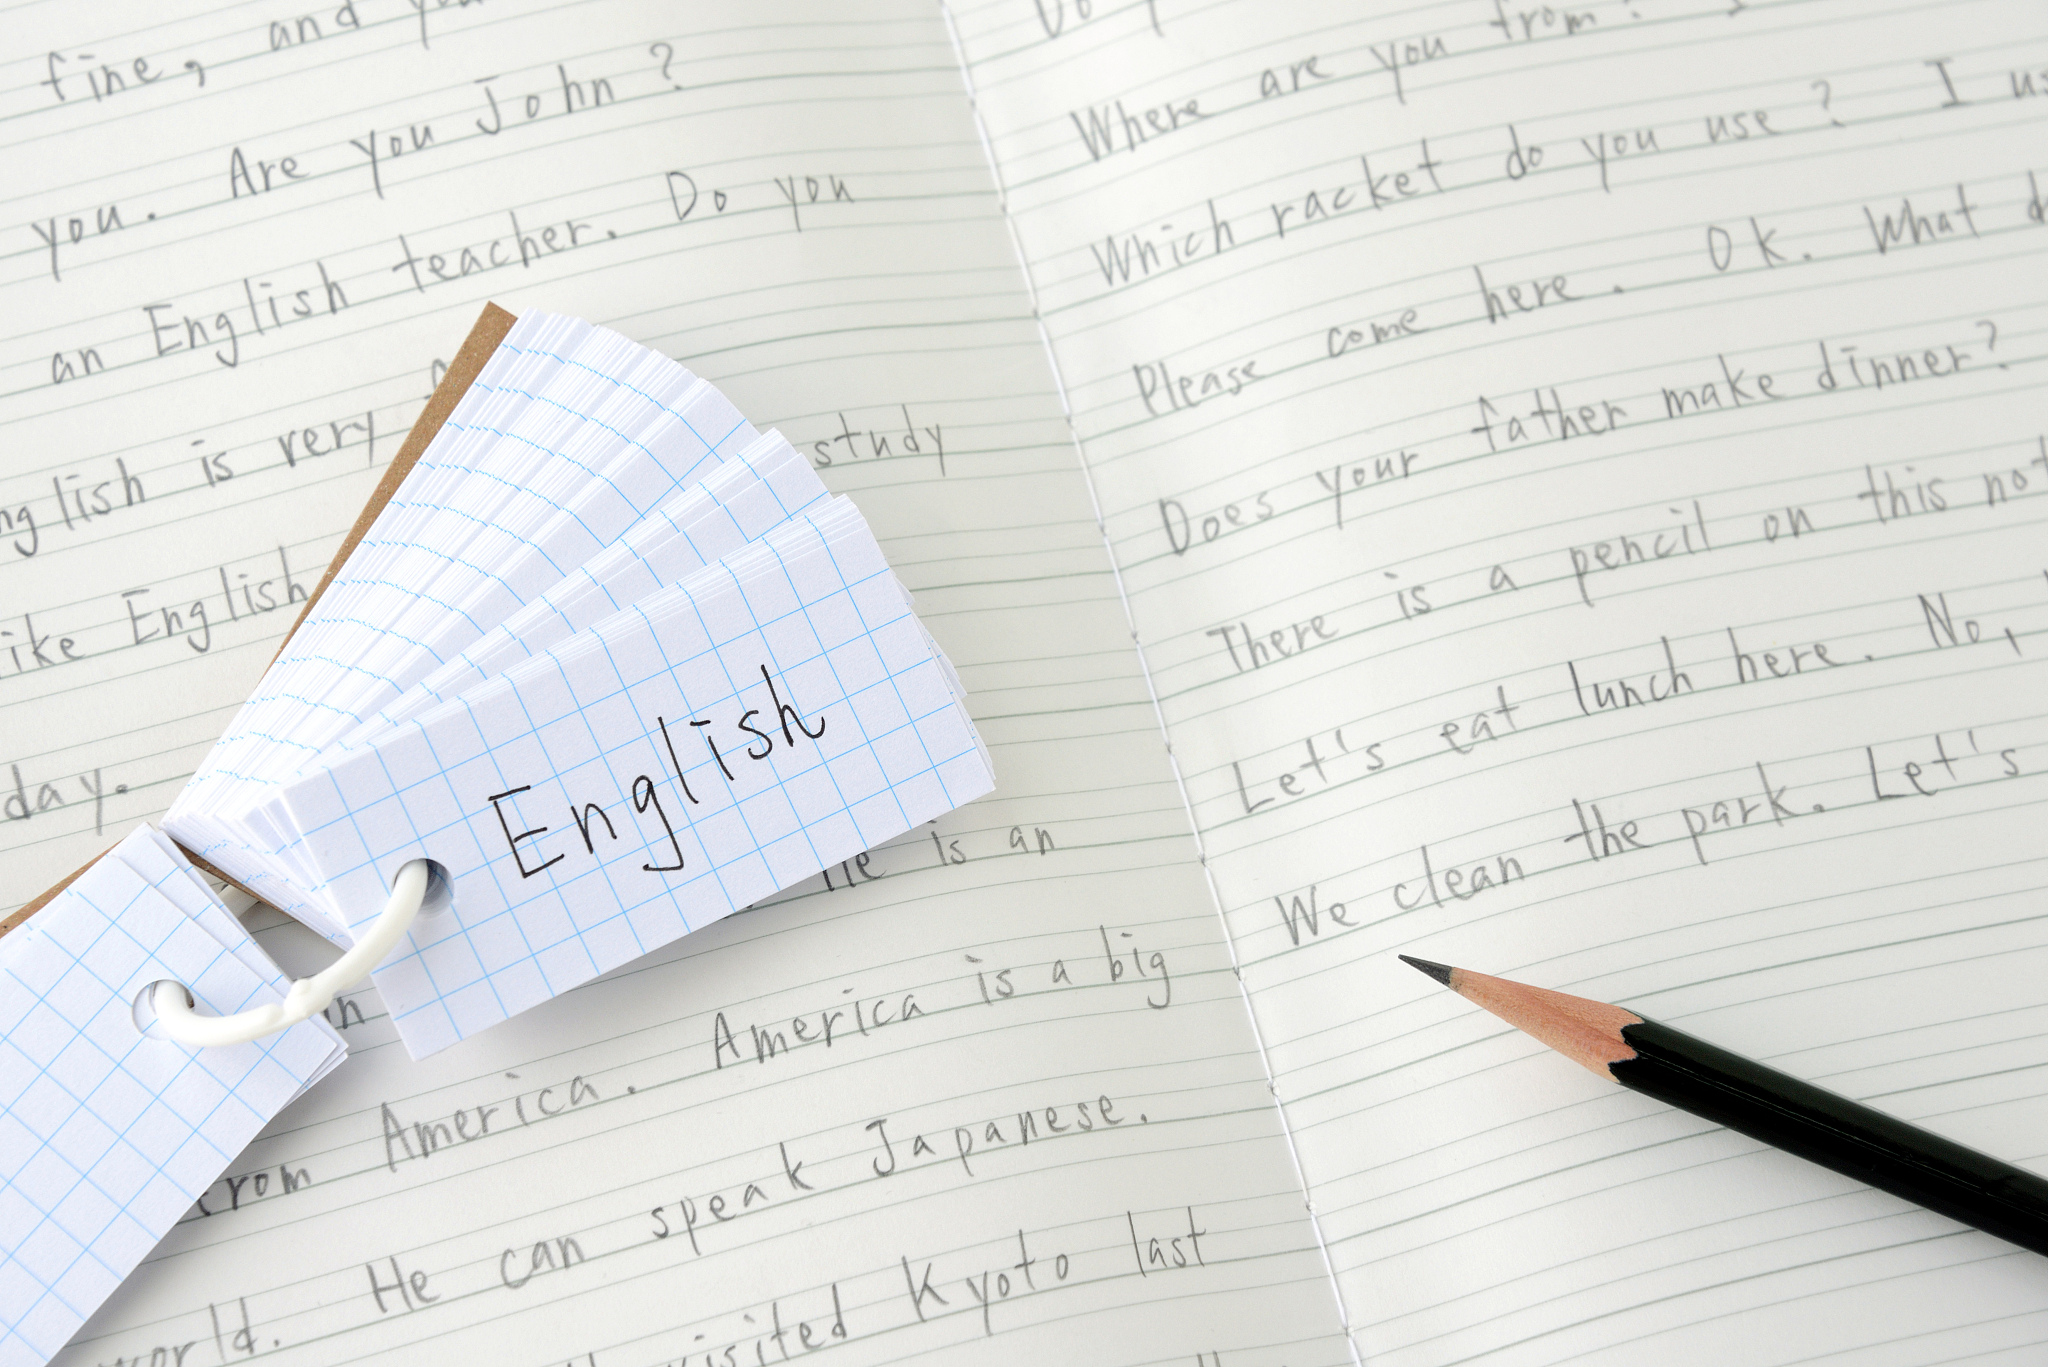 fine, and
you. Are you John?
an English teacher. Do you
English is very
study
like English
day.
is an
America is a big
from America.
He can speak Japanese.
world.
visited Kyoto last
Where are you from?
Which racket do you use? I
Please come here. OK. What
Does your father make dinner?
There is a pencil on this
Let's eat lunch here. No,
We clean the park. Let's
English